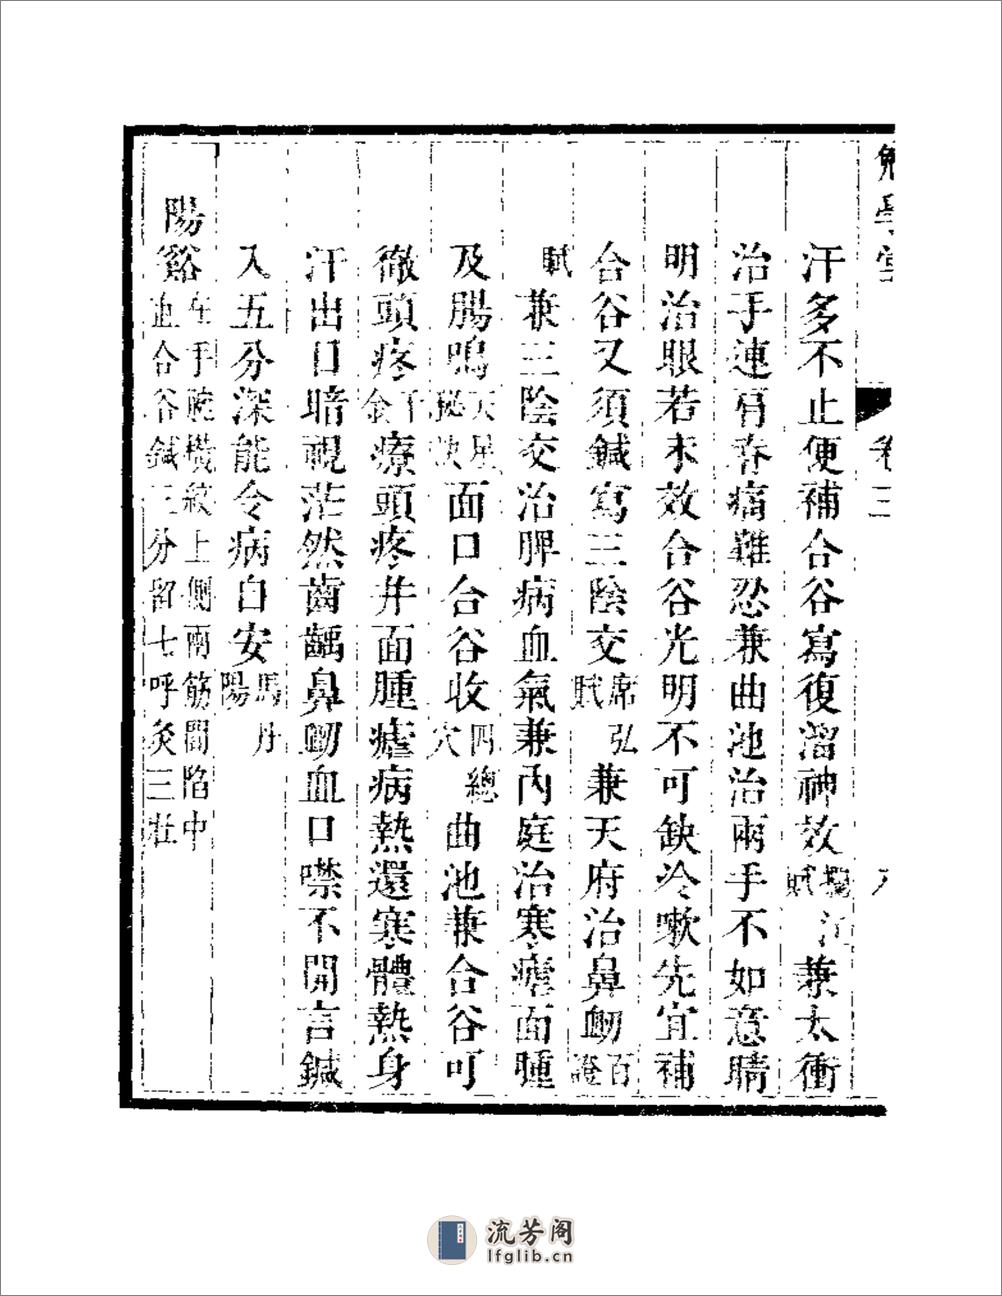 勉學堂 卷三 八
汗多不止便補合谷寫復溜神效攔江賦兼太衝
治手連肩脊痛難忍兼曲池治兩手不如意睛
明治眼若未效合谷光明不可缺冷嗽先宜補
合谷又須鍼寫三陰交席弘賦兼天府治鼻衂百證
賦兼三陰交治脾病血氣兼內庭治寒瘧面腫
及腸鳴天星秘訣面口合谷收四總穴曲池兼合谷可
徹頭疼千金療頭疼并面腫瘧病熱還寒體熱身
汗出口暗視茫然齒齲鼻衂血口噤不開言鍼
入五分深能令病自安馬丹陽
陽谿在手腕橫紋上側兩筋間陷中
直合谷鍼三分留七呼灸三壯
流芳阁
lfglib.cn